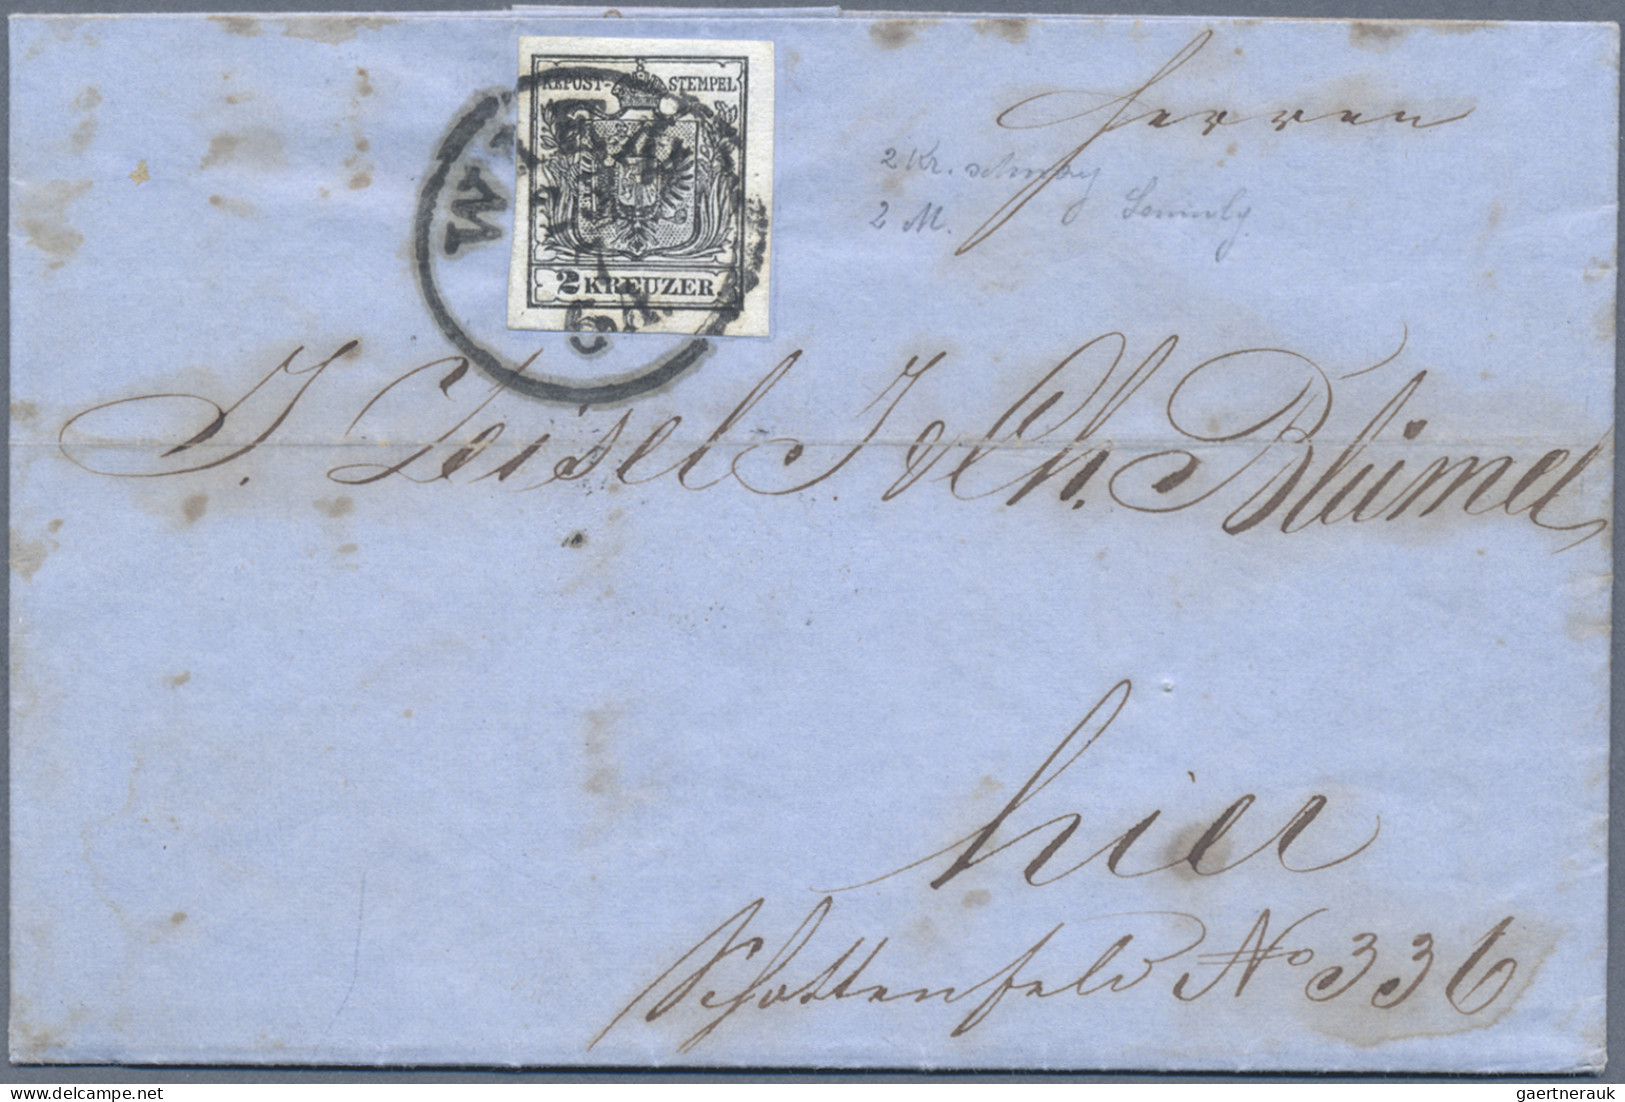 KKPOST-STEMPEL
2 KREUZER.
WIEN
Herren
2 Kr. schwarz
2 M.
J. Zeisel J. & Ch. Blümel
hier
Schottenfeld No 336
gaertnerauk